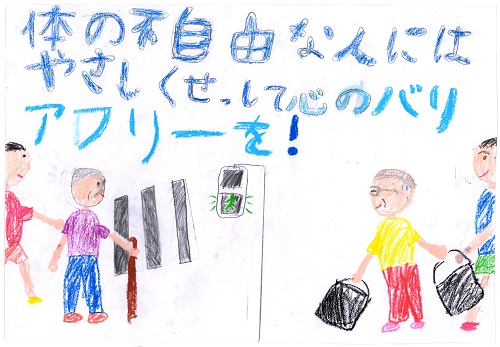 体の不自由な人には
やさしくせっして心のバリ
アフリーを!